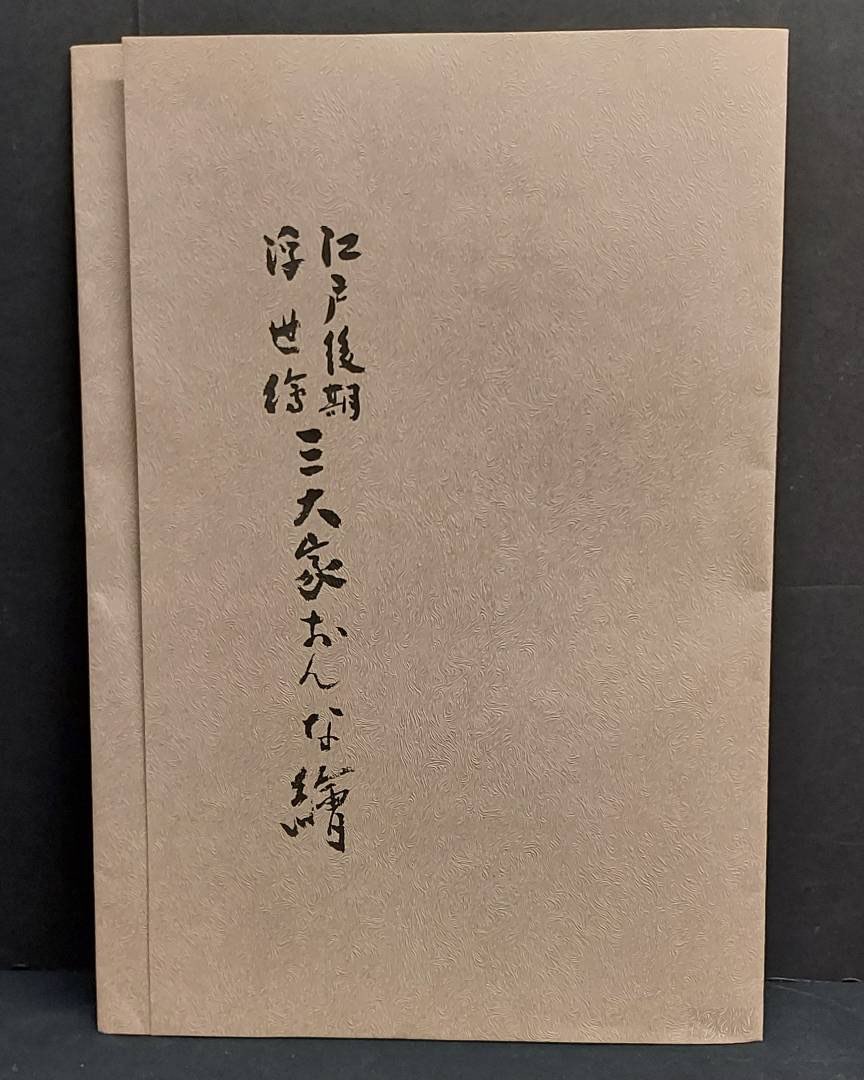 江戸後期
浮世繪
三大家おんな繪